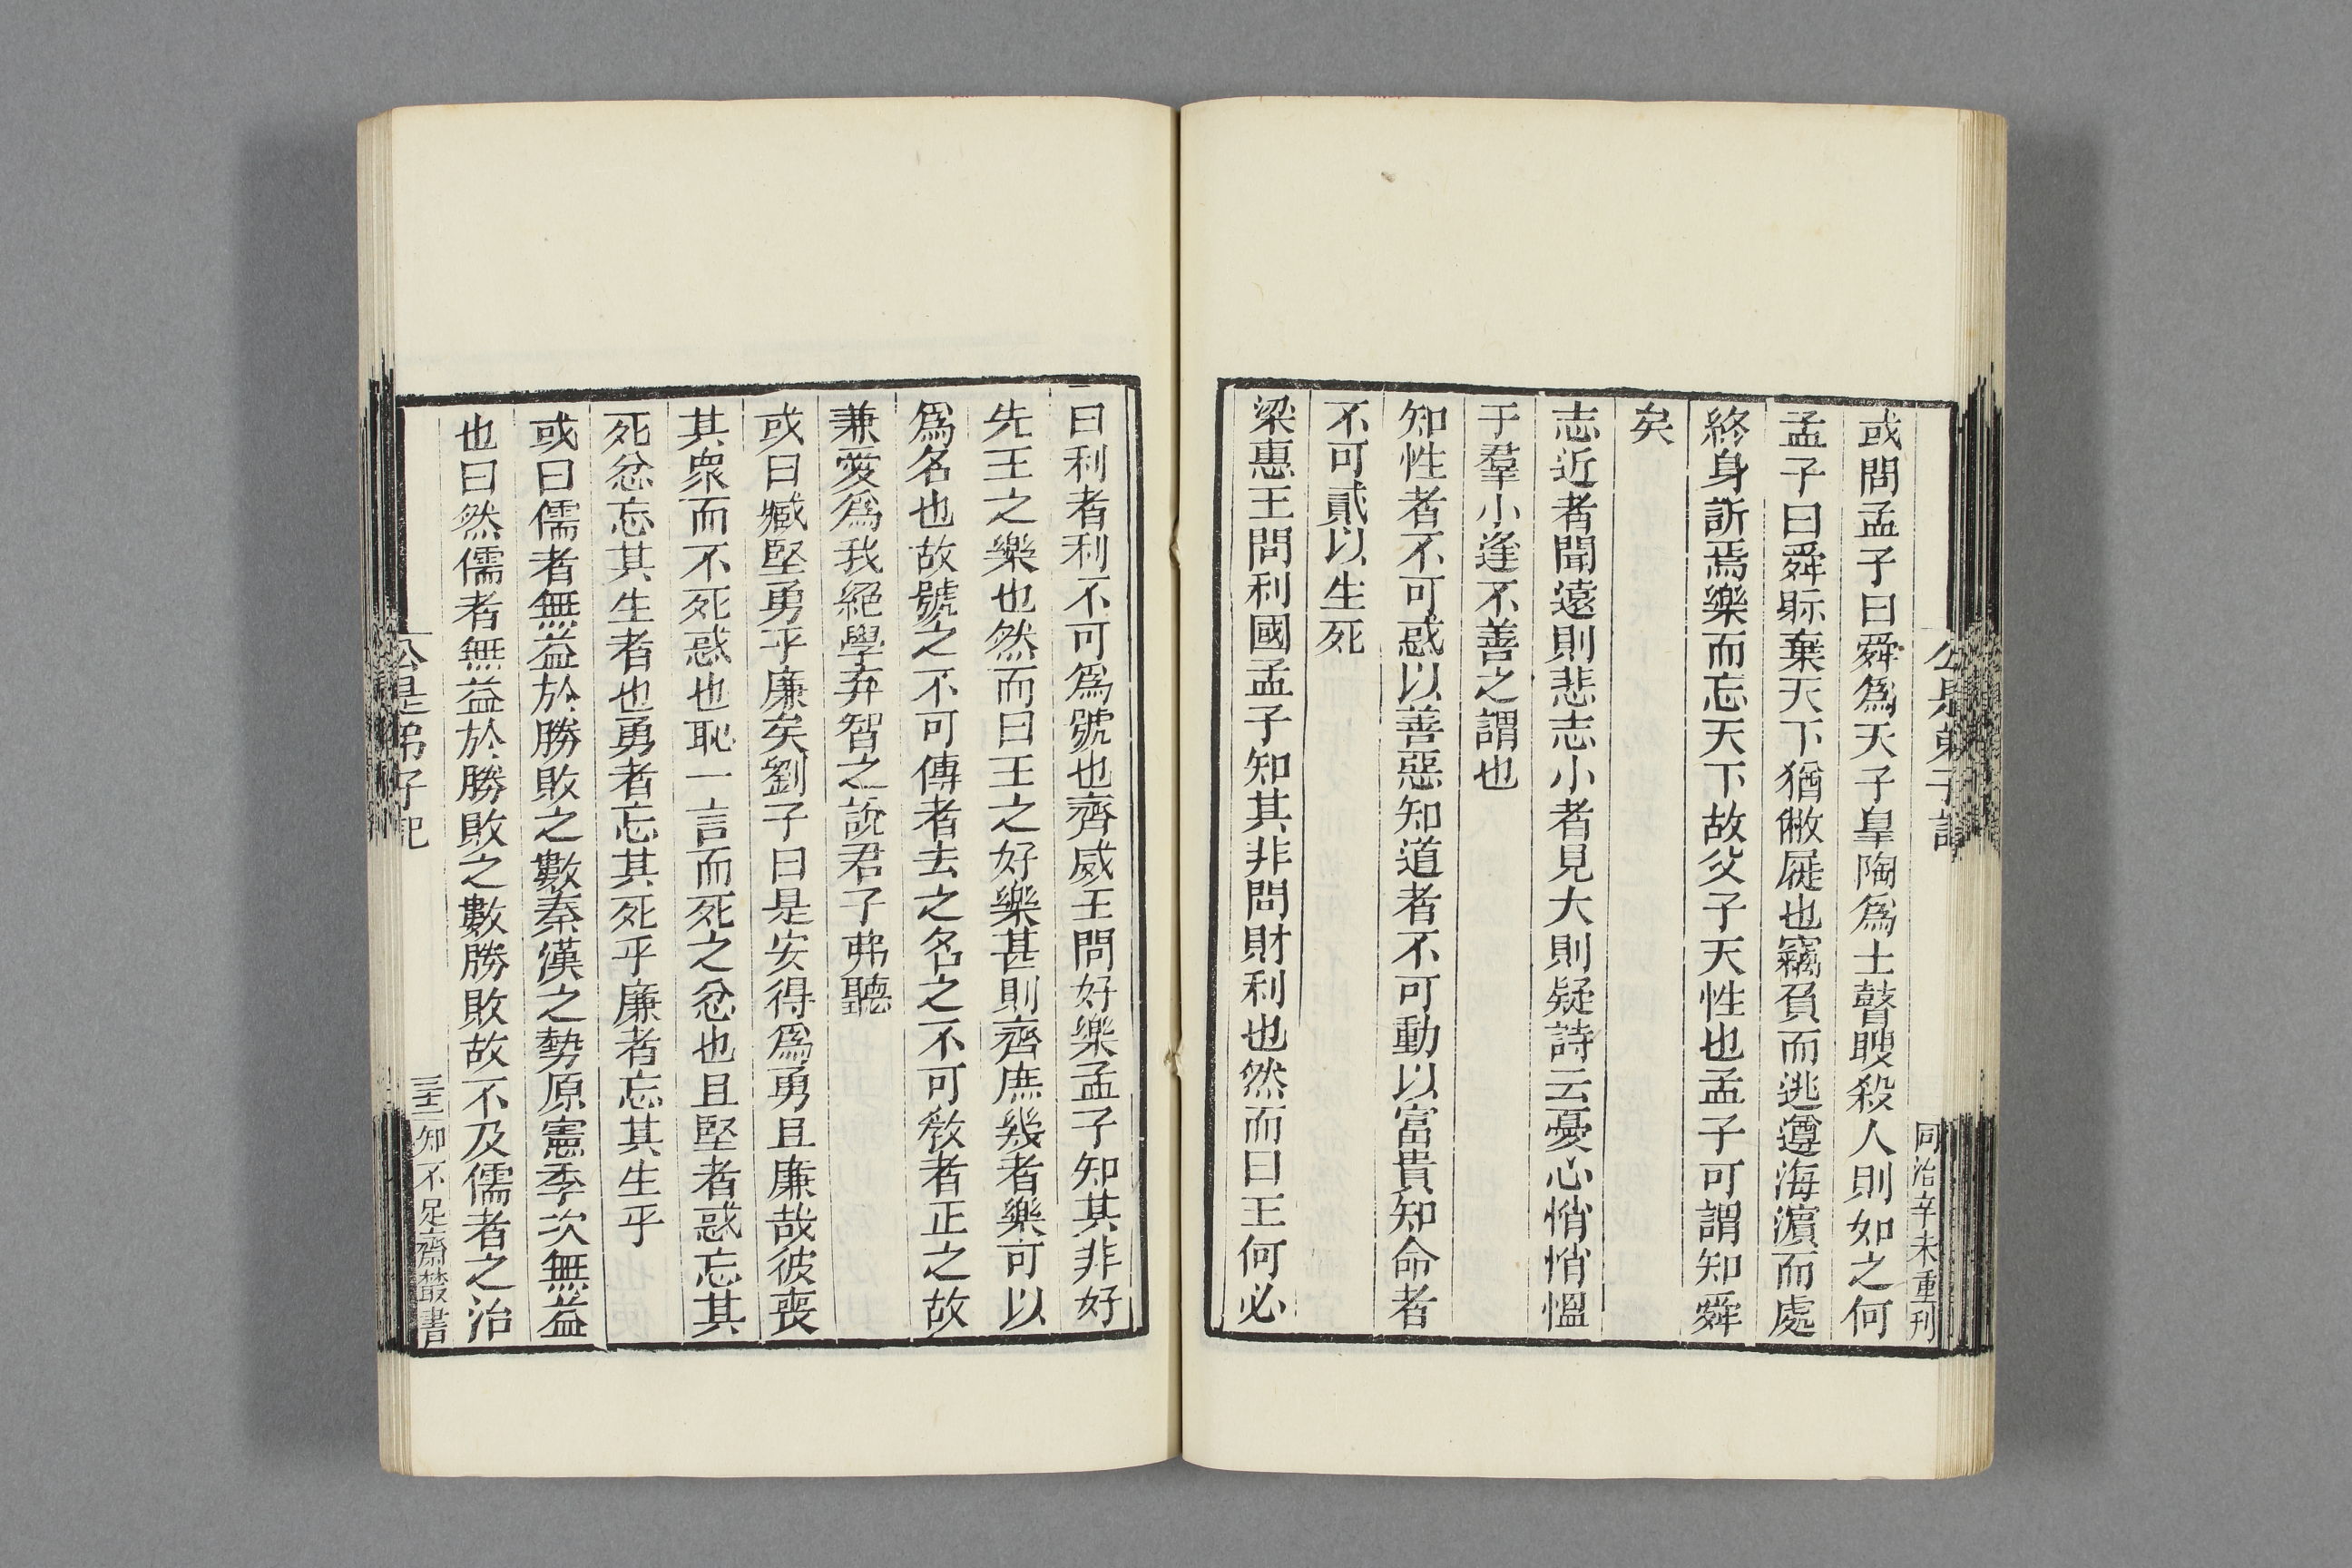 公是弟子記
同治辛未重刊
或問孟子曰舜爲天子皐陶爲士瞽瞍殺人則如之何
孟子曰舜眎棄天下猶敝屣也竊負而逃遵海濵而處
終身訢焉樂而忘天下故父子天性也孟子可謂知舜
矣
志近者聞遠則悲志小者見大則疑詩云憂心悄悄慍
于羣小逢不善之謂也
知性者不可惑以善惡知道者不可動以富貴知命者
不可貳以生死
梁惠王問利國孟子知其非問財利也然而曰王何必
曰利者利不可爲號也齊威王問好樂孟子知其非好
先王之樂也然而曰王之好樂甚則齊庶幾者樂可以
爲名也故號之不可傳者去之名之不可敎者正之故
兼愛爲我絕學弃智之說君子弗聽
或曰臧堅勇乎廉矣劉子曰是安得爲勇且廉哉彼喪
其衆而不死惑也恥一言而死之忿也且堅者惑忘其
死忿忘其生者也勇者忘其死乎廉者忘其生乎
或曰儒者無益於勝敗之數秦漢之勢原憲季次無益
也曰然儒者無益於勝敗之數勝敗故不及儒者之治
公是弟子記
三十二
知不足齋叢書